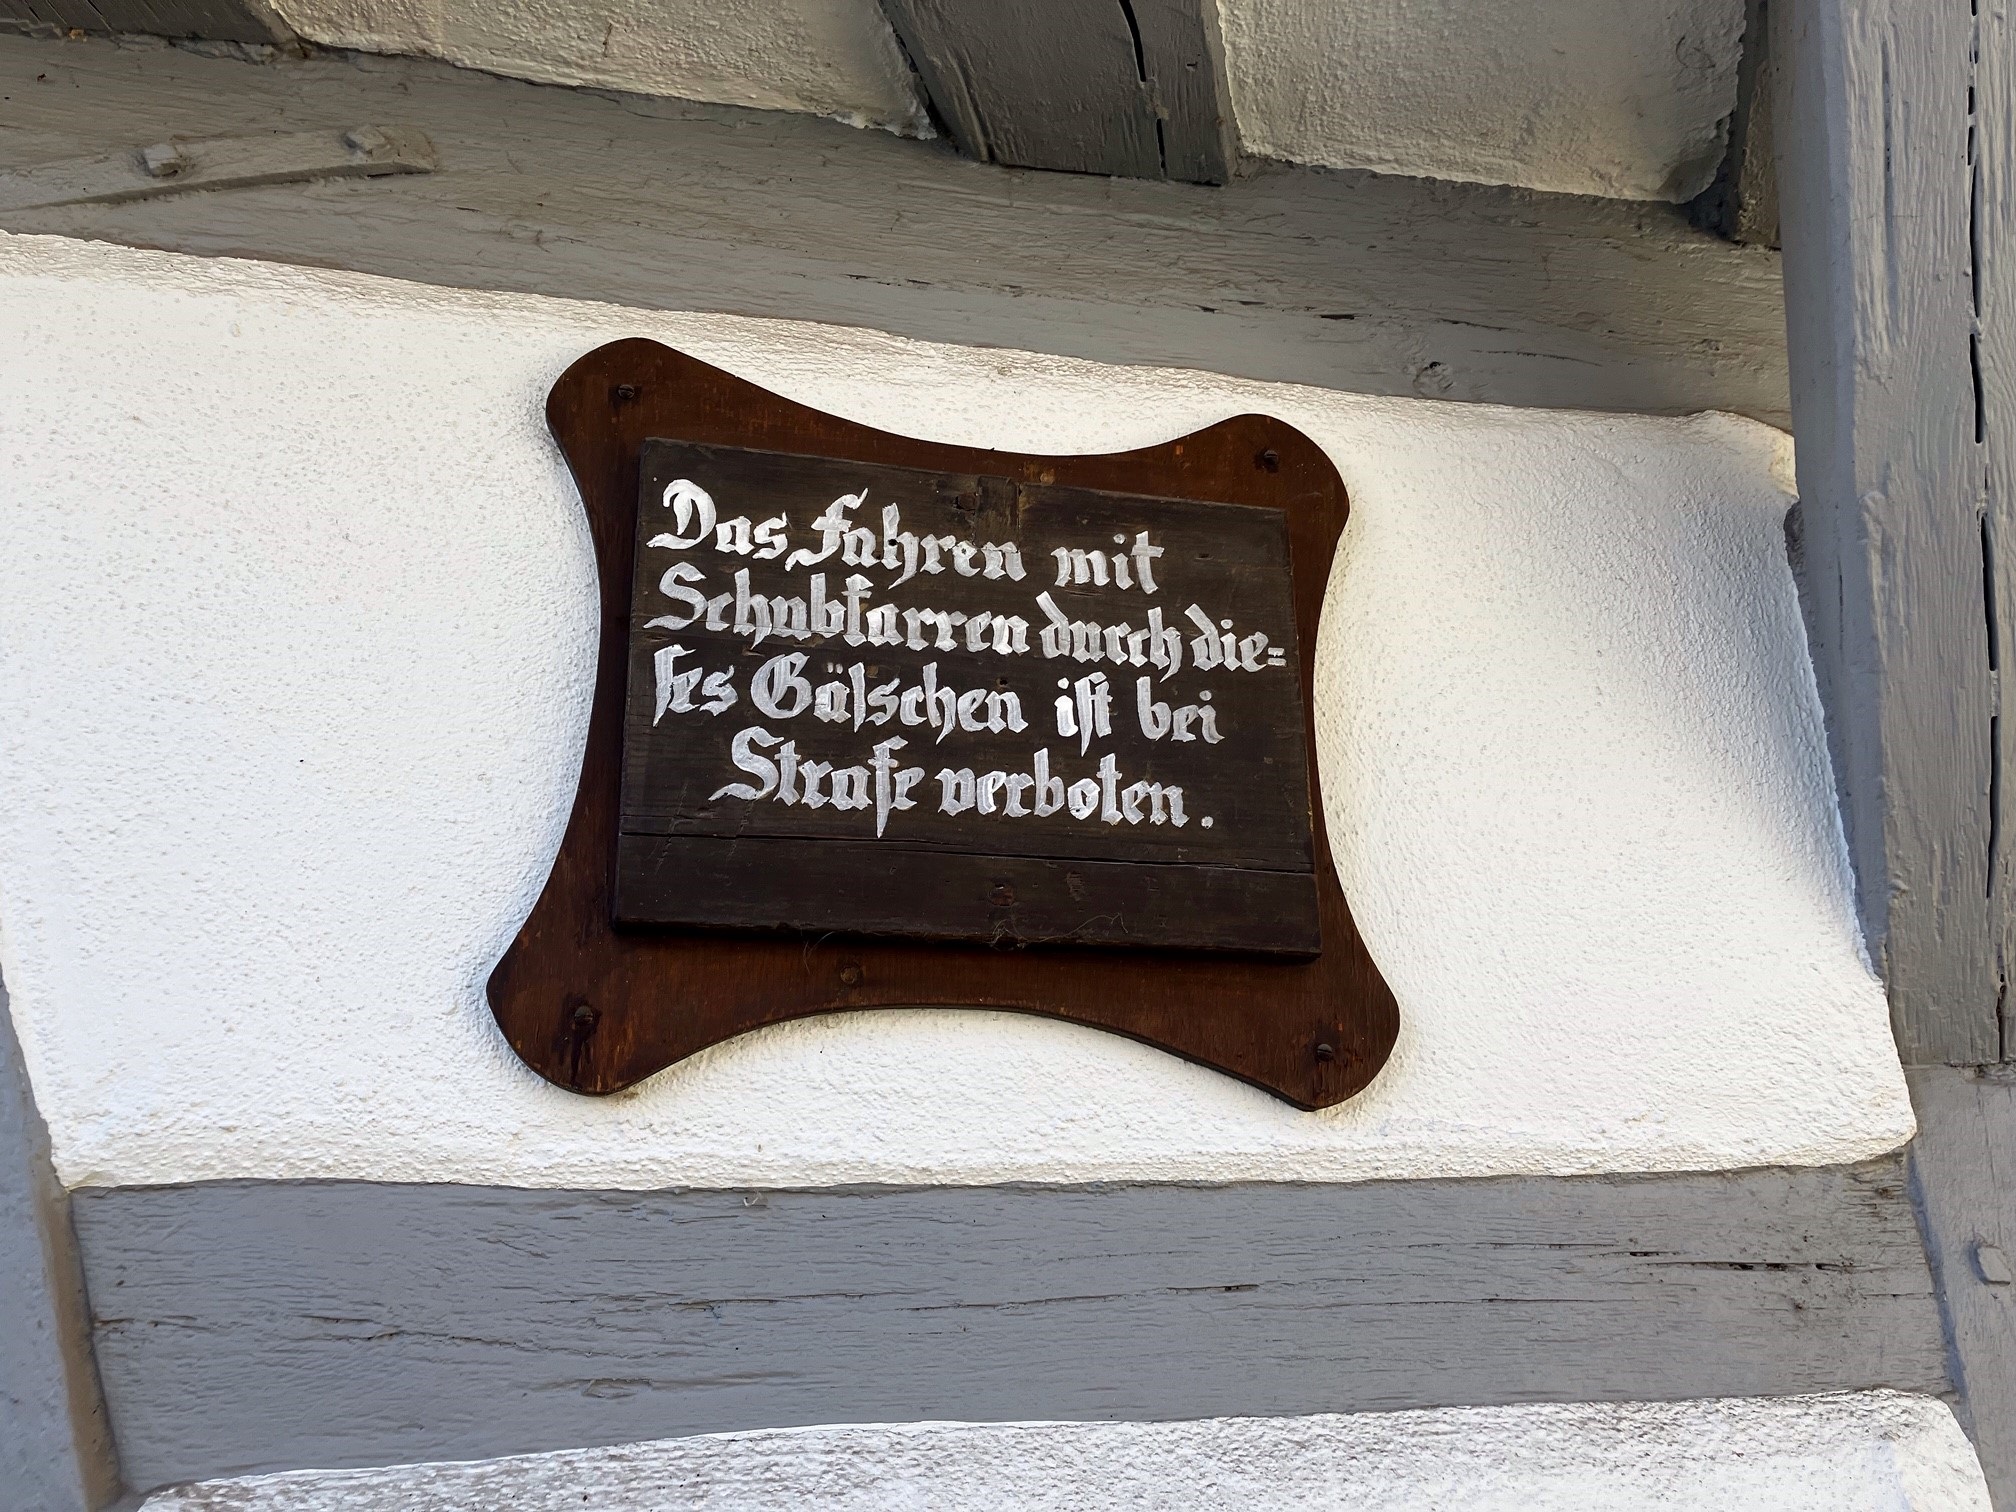 Das Fahren mit
Schubkarren durch die=
ſes Gäſschen iſt bei
Strafe verboten.